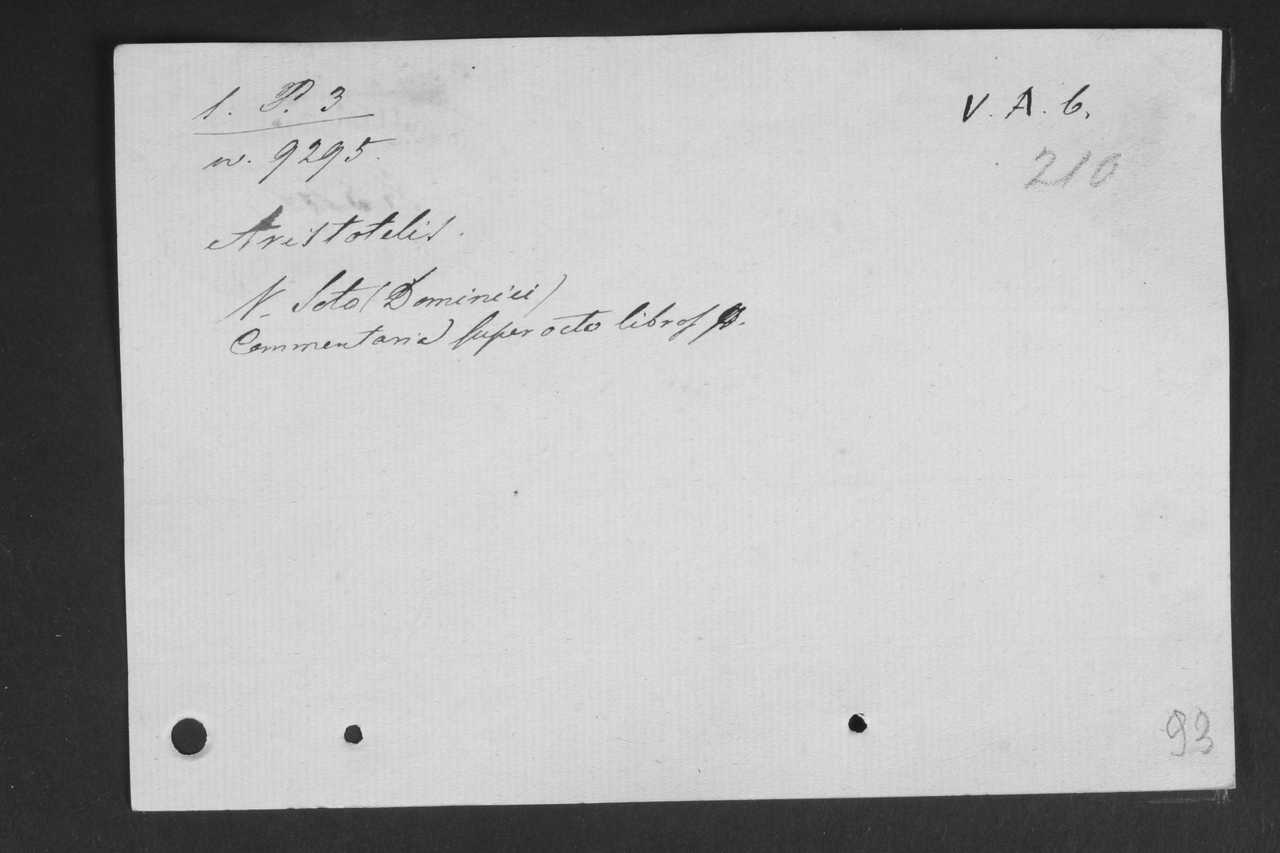 1. P. 3
V. A. 6.
n. 9295.
210
Aristotelis.
V. Soto (Dominici)
Commentaria super octo libros
93